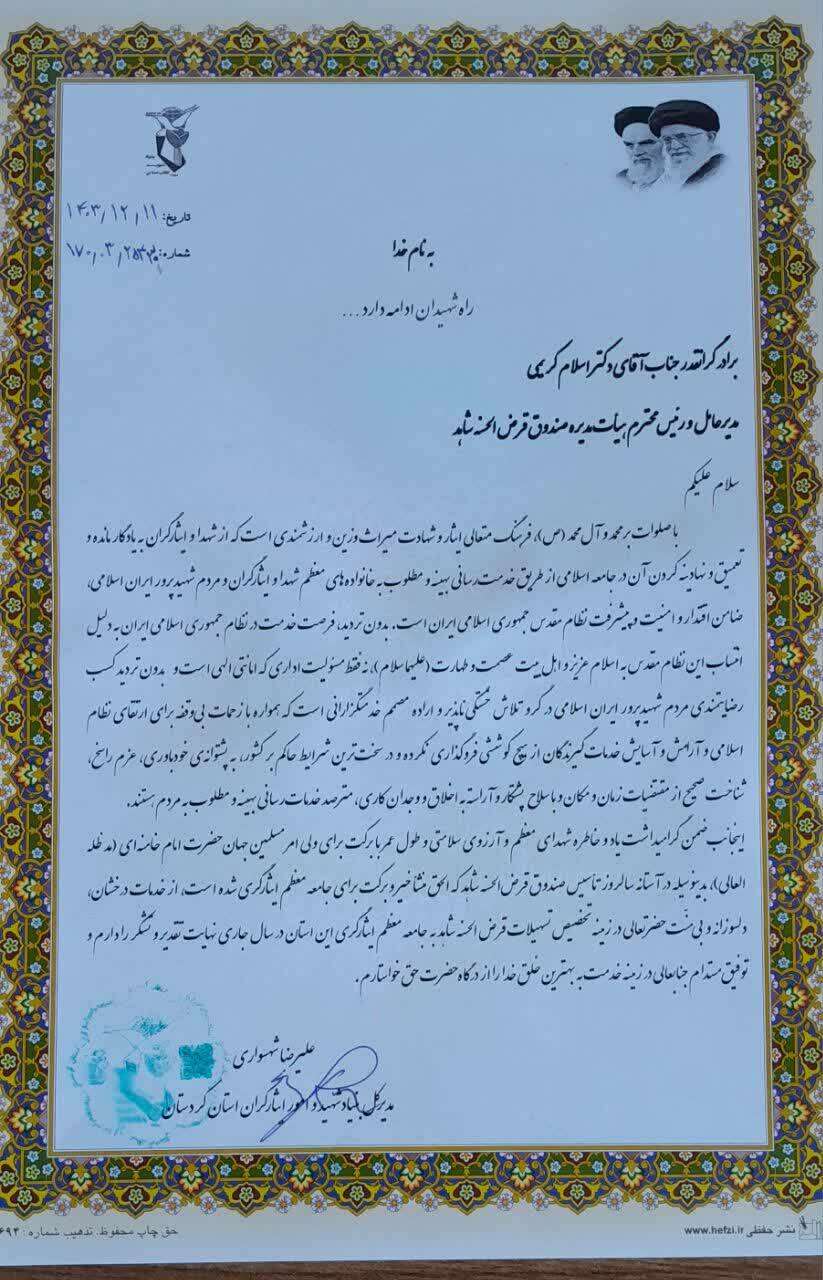 تاریخ: ۱۴۰۳/۱۲/۱۱
شماره:
به نام خدا
راه شهیدان ادامه دارد...
برادر گرانقدر جناب آقای دکتر اسلام کریمی
مدیرعامل و رئیس محترم هیأت مدیره صندوق قرض الحسنه شاهد
سلام علیکم
با صلوات بر محمد و آل محمد (ص)، فرهنگ متعالی ایثار و شهادت میراث وزین و ارزشمندی است که از شهدا و ایثارگران به یادگار مانده و
تعمیق و نهادینه کردن آن در جامعه اسلامی از طریق خدمت رسانی بهینه و مطلوب به خانواده های معظم شهدا و ایثارگران و مردم شهید پرور ایران اسلامی،
ضامن اقتدار و امنیت و پیشرفت نظام مقدس جمهوری اسلامی ایران است. بدون تردید، فرصت خدمت در نظام جمهوری اسلامی ایران به دلیل
انتساب این نظام مقدس به اسلام عزیز و اهل بیت عصمت و طهارت (علیهماسلام)، نه فقط مسئولیت اداری که امانتی الهی است و بدون تردید کسب
رضایتمندی مردم شهید پرور ایران اسلامی در گرو تلاش خستگی ناپذیر و اراده مصمم خدمتگزارانی است که همواره با زحمات بی وقفه برای ارتقای نظام
اسلامی و آرامش و آسایش خدمات گیرندگان از هیچ کوششی فروگذاری نکرده و در سخت ترین شرایط حاکم بر کشور، به پشتوانه ی خودباوری، عزم راسخ،
شناخت صحیح از مقتضیات زمان و مکان و با سلاح پشتکار و آراسته به اخلاق و وجدان کاری، مترصد خدمات رسانی بهینه و مطلوب به مردم هستند.
اینجانب ضمن گرامیداشت یاد و خاطره شهدای معظم و آرزوی سلامتی و طول عمر با برکت برای ولی امر مسلمین جهان حضرت امام خامنه ای (مد ظله
العالی)، بدینوسیله در آستانه سالروز تأسیس صندوق قرض الحسنه شاهد که الحق منشا خیر و برکت برای جامعه معظم ایثارگری شده است، از خدمات درخشان،
دلسوزانه و بی منت حضرتعالی در زمینه تخصیص تسهیلات قرض الحسنه شاهد به جامعه معظم ایثارگری این استان در سال جاری نهایت تقدیر و تشکر را دارم و
توفیق مستدام جنابعالی در زمینه خدمت به بهترین خلق خدا را از درگاه حضرت حق خواستارم.
علیرضا شهسواری
مدیرکل بنیاد شهید و امور ایثارگران استان کردستان
نشر حفظی www.hefzi.ir
حق چاپ محفوظ. تذهیب شماره :